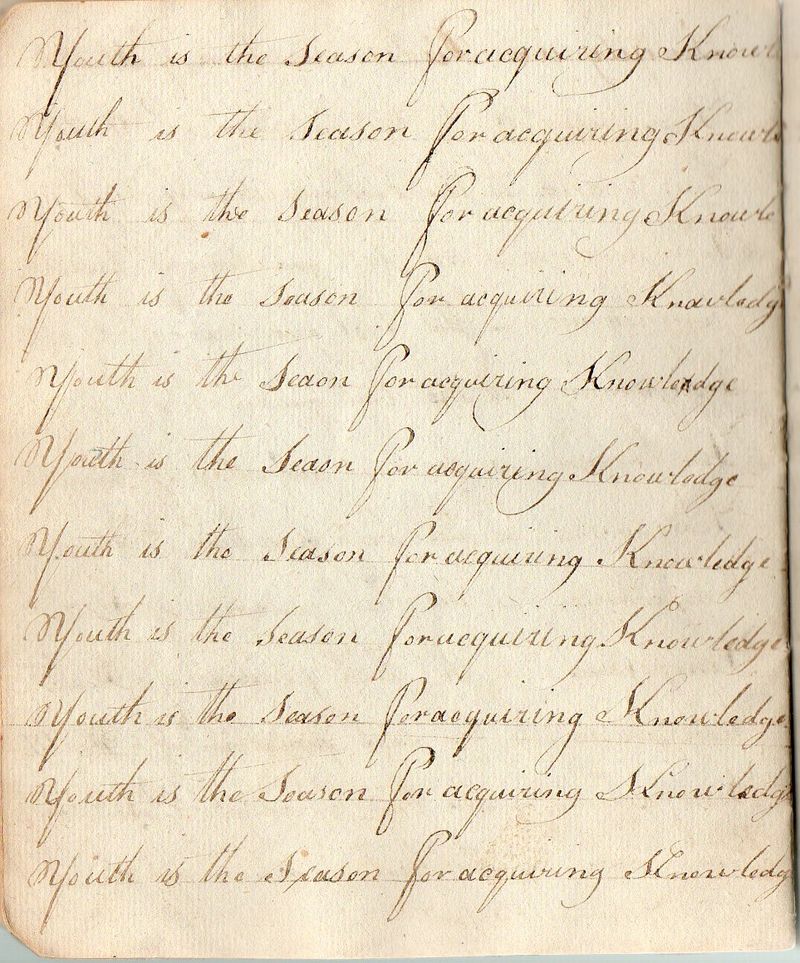 Youth is the Season for acquiring Knowl
Youth is the Season for acquiring Knowle
Youth is the Season for acquiring Knowle
Youth is the Season for acquiring Knowledg
Youth is the Seaon for acquiring Knowledge
Youth is the Seaon for acquiring Knowledge
Youth is the Season for acquiring Knowledge
Youth is the Season for acquiring Knowledge
Youth is the Season for acquiring Knowledge
Youth is the Season for acquiring Knowledge
Youth is the Season for acquiring Knowledg